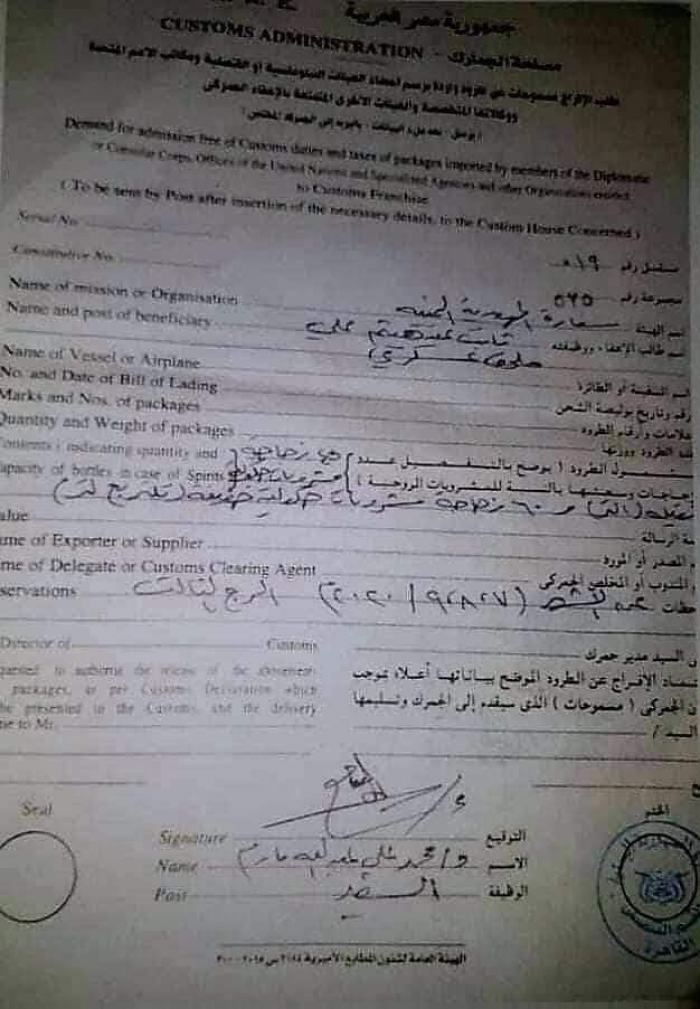 جمهورية مصر العربية
CUSTOMS ADMINISTRATION - مصلحة الجمارك
طلب الإفراج مسموحات عن طرود واردة برسم أعضاء الهيئات الدبلوماسية أو القنصلية ومكاتب الأمم المتحدة
ووكالاتها المتخصصة والهيئات الأخرى المتمتعة بالإعفاء الجمركي
Demand for admission free of Customs duties and taxes of packages imported by members of the Diplomatic
or Consular Corps, Offices of the United Nations and Specialized Agencies and other Organisations entitled
to Customs Franchise
( To be sent by Post after insertion of the necessary details, to the Custom House Concerned )
Serial No. مسلسل رقم ١٩
Consecutive No. مجموعة رقم ٥٩٥
Name of mission or Organisation سفارة الجمهورية اليمنية اسم الهيئة
Name and post of beneficiary علي اسم طالب الإعفاء ووظيفته
ملحق عسكري
Name of Vessel or Airplane اسم السفينة أو الطائرة
No. and Date of Bill of Lading رقم وتاريخ بوليصة الشحن
Marks and Nos. of packages علامات وأرقام الطرود
Quantity and Weight of packages عدد الطرود ووزنها
Contents ( indicating quantity and زجاجة مشمول الطرود ( يوضح بالتفصيل عدد
capacity of bottles in case of Spirits مشروبات الزجاجات وسعتها بالنسبة للمشروبات الروحية )
٦٠ زجاجة مشروبات كحولية خفيفة
alue مة الرسالة
me of Exporter or Supplier المصدر أو المورد
me of Delegate or Customs Clearing Agent المندوب أو المخلص الجمركي
servations (٩٢٨٢٧ / ٢٠٢٠) حظات
Director of Customs السيد مدير جمرك
quested to authorise the release of the
packages, as per Customs Declaration which
be presented to the Customs, and the delivery
me to Mr.
الإفراج عن الطرود الموضح بياناتها أعلاه بموجب
ن الجمركي ( مسموحات ) الذي سيقدم إلى الجمرك وتسليمها
السيد /
Seal الختم
Signature التوقيع
Name محمد علي مارم الاسم
Post السفير الوظيفة
القاهرة
الهيئة العامة لشئون المطابع الأميرية